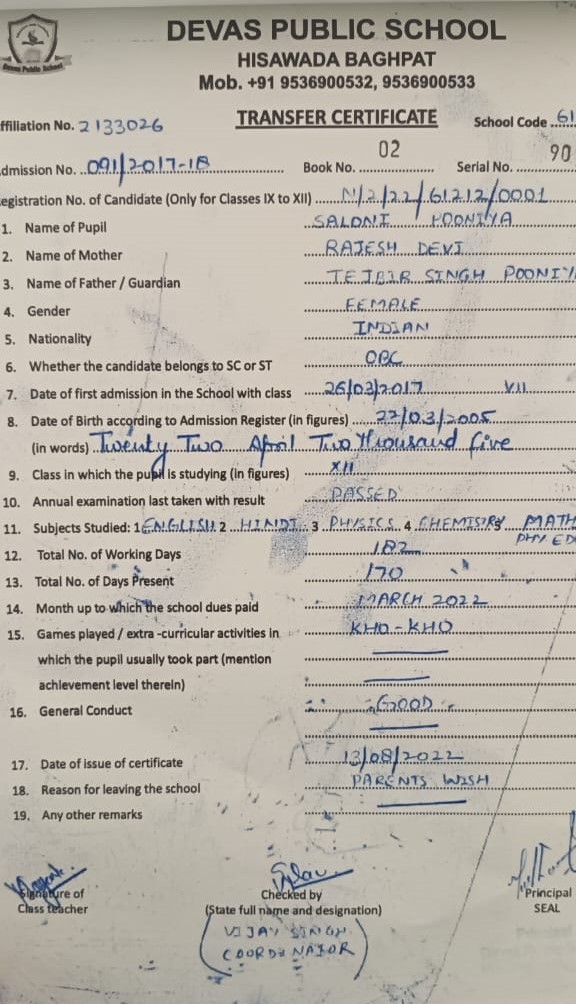 Devas Public School
DEVAS PUBLIC SCHOOL
HISAWADA BAGHPAT
Mob. +91 9536900532, 9536900533
TRANSFER CERTIFICATE
ffiliation No. 2133026 School Code ..61
dmission No. ..091/2017-18 Book No. 02 Serial No. 90
egistration No. of Candidate (Only for Classes IX to XII) N/2/22/61212/0001
1. Name of Pupil SALONI POONIYA
2. Name of Mother RAJESH DEVI
3. Name of Father / Guardian TEJBIR SINGH POONIY
4. Gender FEMALE
5. Nationality INDIAN
6. Whether the candidate belongs to SC or ST OBC
7. Date of first admission in the School with class 26/03/2017 VII
8. Date of Birth according to Admission Register (in figures) 22/03/2005
(in words) Twenty Two April Two Thousand five
9. Class in which the pupil is studying (in figures) XII
10. Annual examination last taken with result PASSED
11. Subjects Studied: 1 ENGLISH 2 HINDI 3 PHYSICS 4 CHEMISTRY MATH
PHY ED
12. Total No. of Working Days 182
13. Total No. of Days Present 170
14. Month up to which the school dues paid MARCH 2022
15. Games played / extra -curricular activities in KHO-KHO
which the pupil usually took part (mention
achievement level therein)
16. General Conduct GOOD
17. Date of issue of certificate 13/08/2022
18. Reason for leaving the school PARENTS WISH
19. Any other remarks
Signature of Class teacher
Checked by
(State full name and designation)
Principal
SEAL
VIJAY SINGH
COORDINATOR